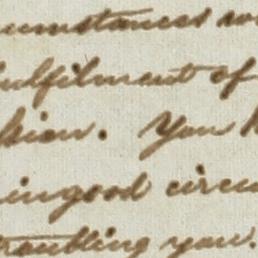 cumstances
ulfilment of
sion. You
ingood circu
troubling you.